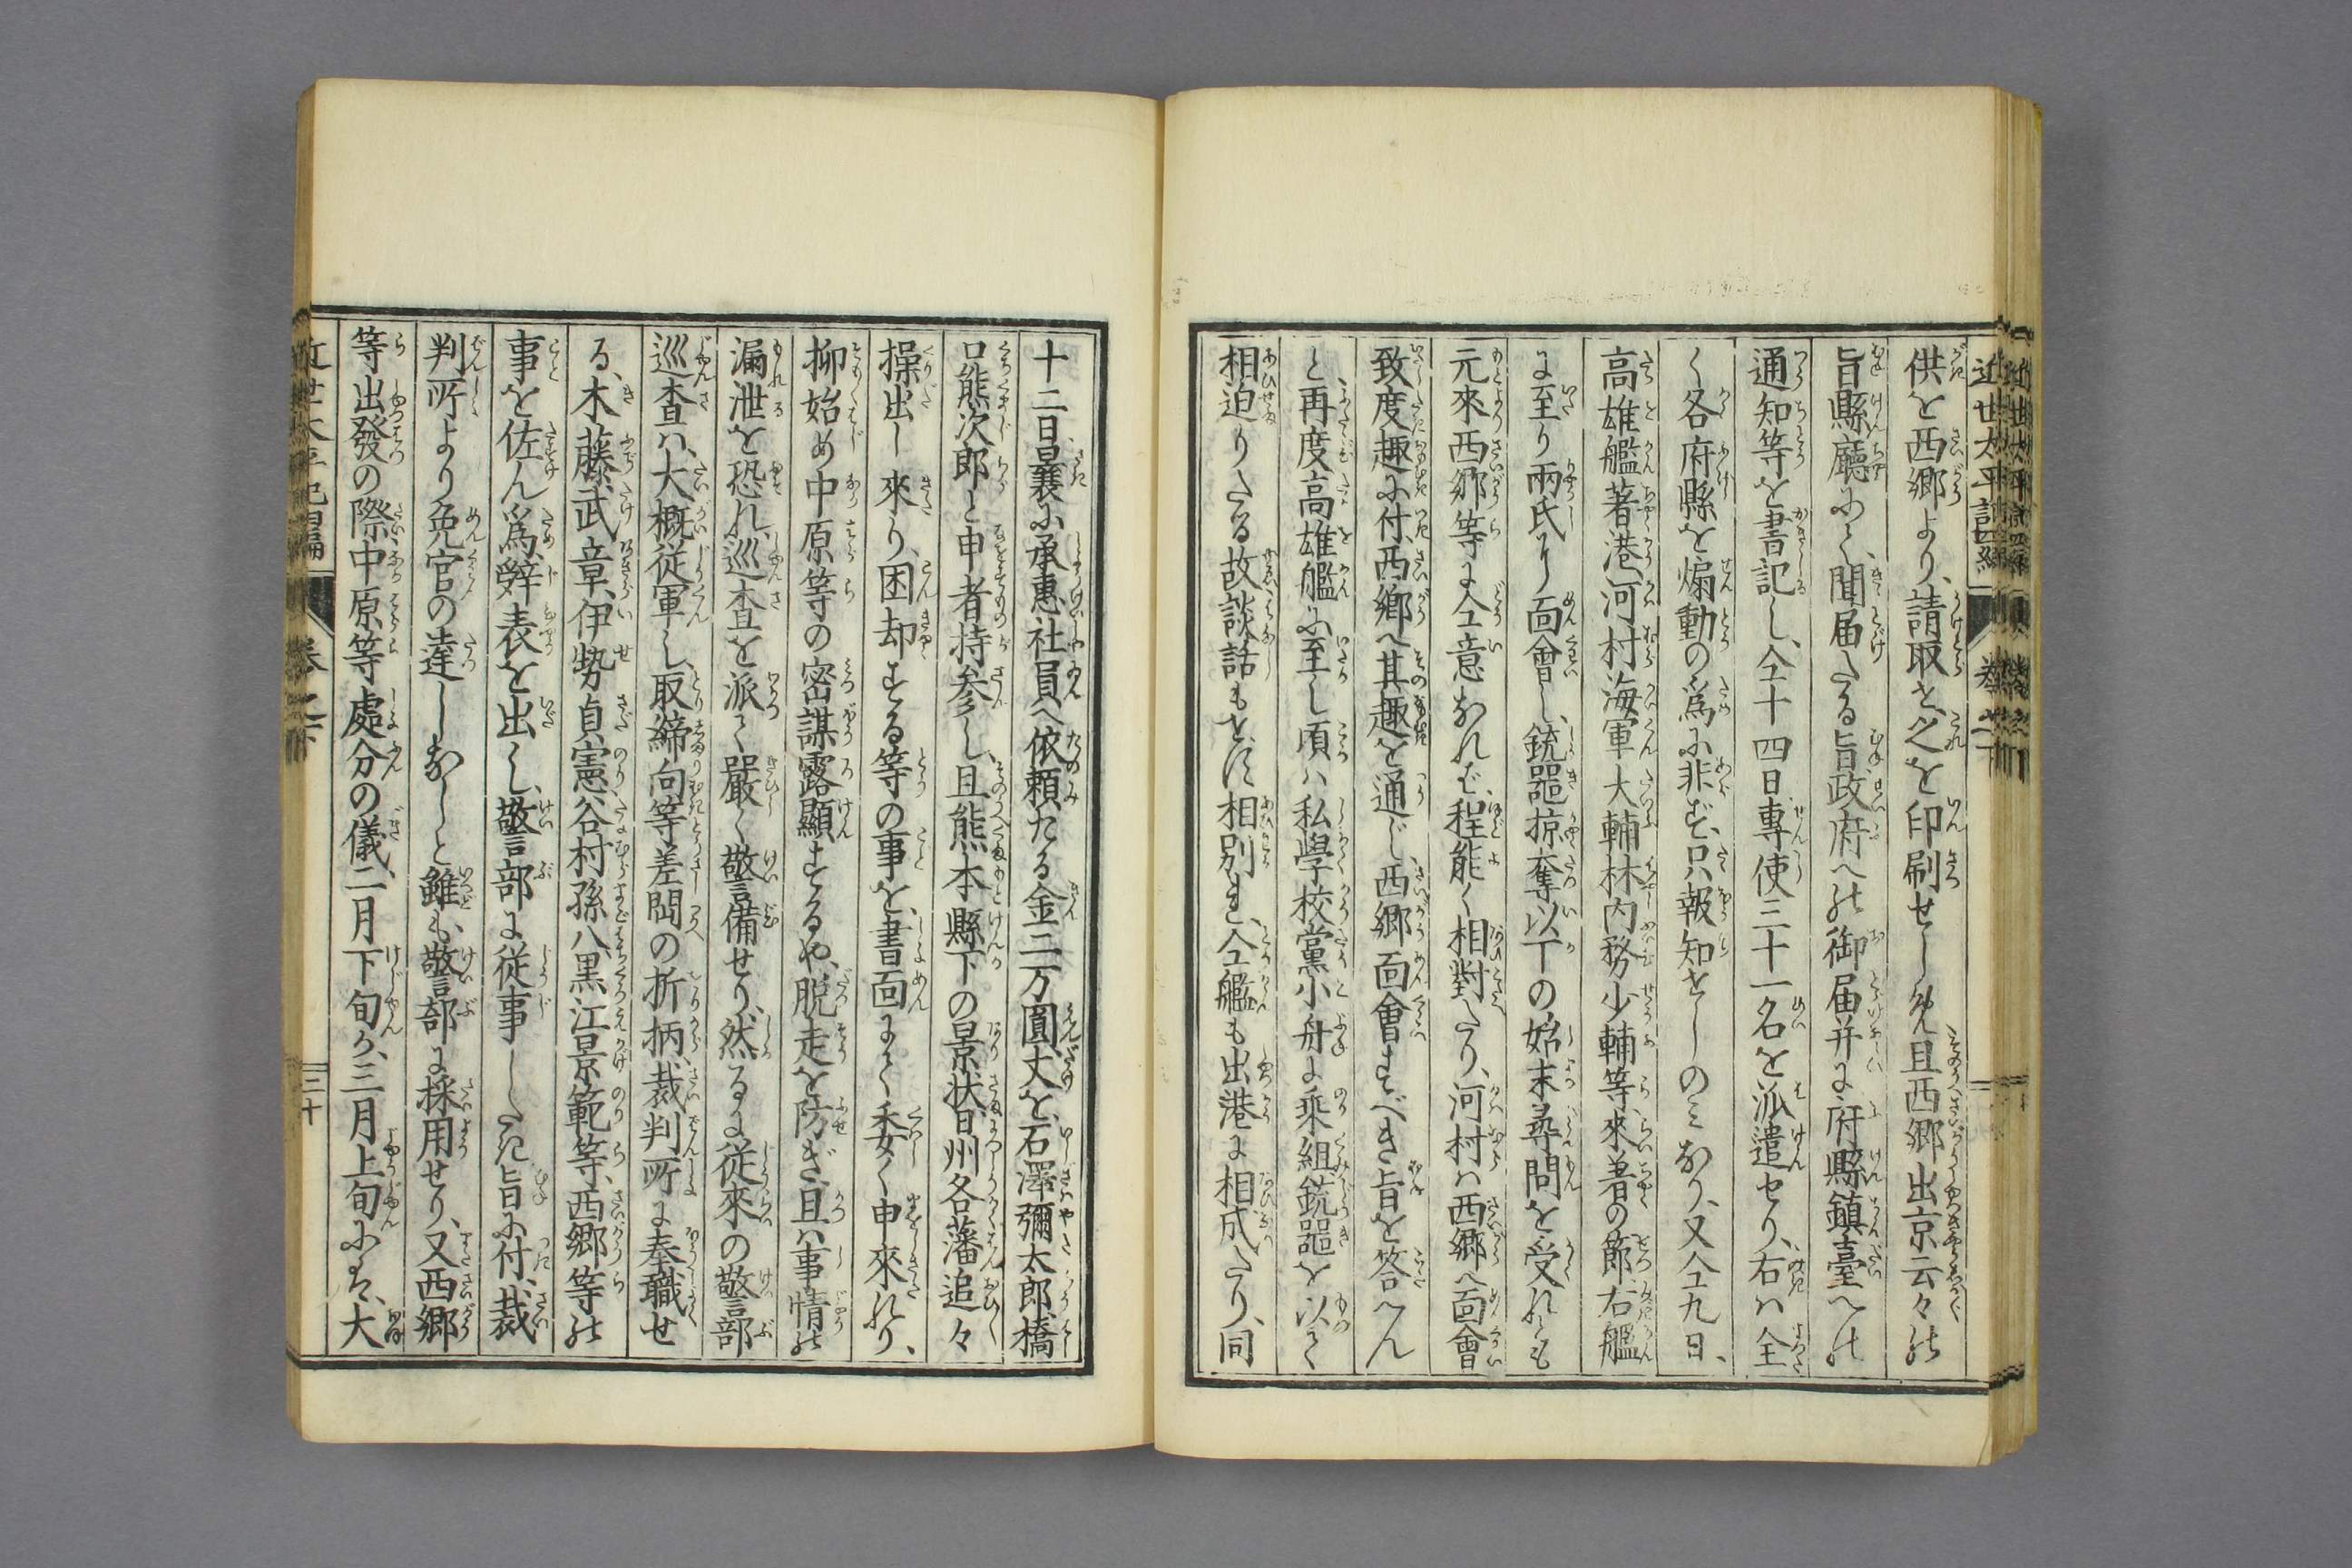 近世太平記四編 巻之下
供を西郷より、請取を之を印刷せしめ且西郷出京云々の
旨縣廳にて、聞届たる旨政府への御届并に府縣鎮臺への
通知等を書記し、仝十四日專使三十一名を派遣せり、右は全
く各府縣を煽動の爲に非ず、只報知をしのみなり、又仝九日、
高雄艦著港河村海軍大輔林内務少輔等來着の節、右艦
に至り兩氏に面會し、銃器掠奪以下の始末尋問を受れとも
元來西郷等に仝意なれば、程能く相對たり、河村は西郷へ面會
致度趣に付、西郷へ其趣を通じ、西郷面會すべき旨を答へん
と再度高雄艦に至し頃は私學校黨小舟に乘組銃器を以て
相迫りたる故談話もせず相別れ、仝艦も出港に相成たり、同
十二日曩に承惠社員へ依頼たる金二万圓丈を、石澤彌太郎、橋
口熊次郎と申者持参し、且熊本縣下の景状、日州各藩追々
操出し來り、困却する等の事を、書面にて委く申來れり、
抑始め中原等の密謀露顯するや、脱走を防ぎ、且は事情の
漏泄を恐れ、巡査を派て嚴く警備せり、然るに従來の警部
巡査は、大概従軍し、取締向等差閊の折柄、裁判所に奉職せ
る、木藤武章、伊勢貞憲、谷村孫八、黒江景範等、西郷等の
事を佐ん爲、辭表を出し、警部に従事したき旨に付、裁
判所より免官の達しなしと雖も、警部に採用せり、又西郷
等出發の際中原等處分の儀、二月下旬か、三月上旬にハ、大
近世太平記四編 巻之下 三十